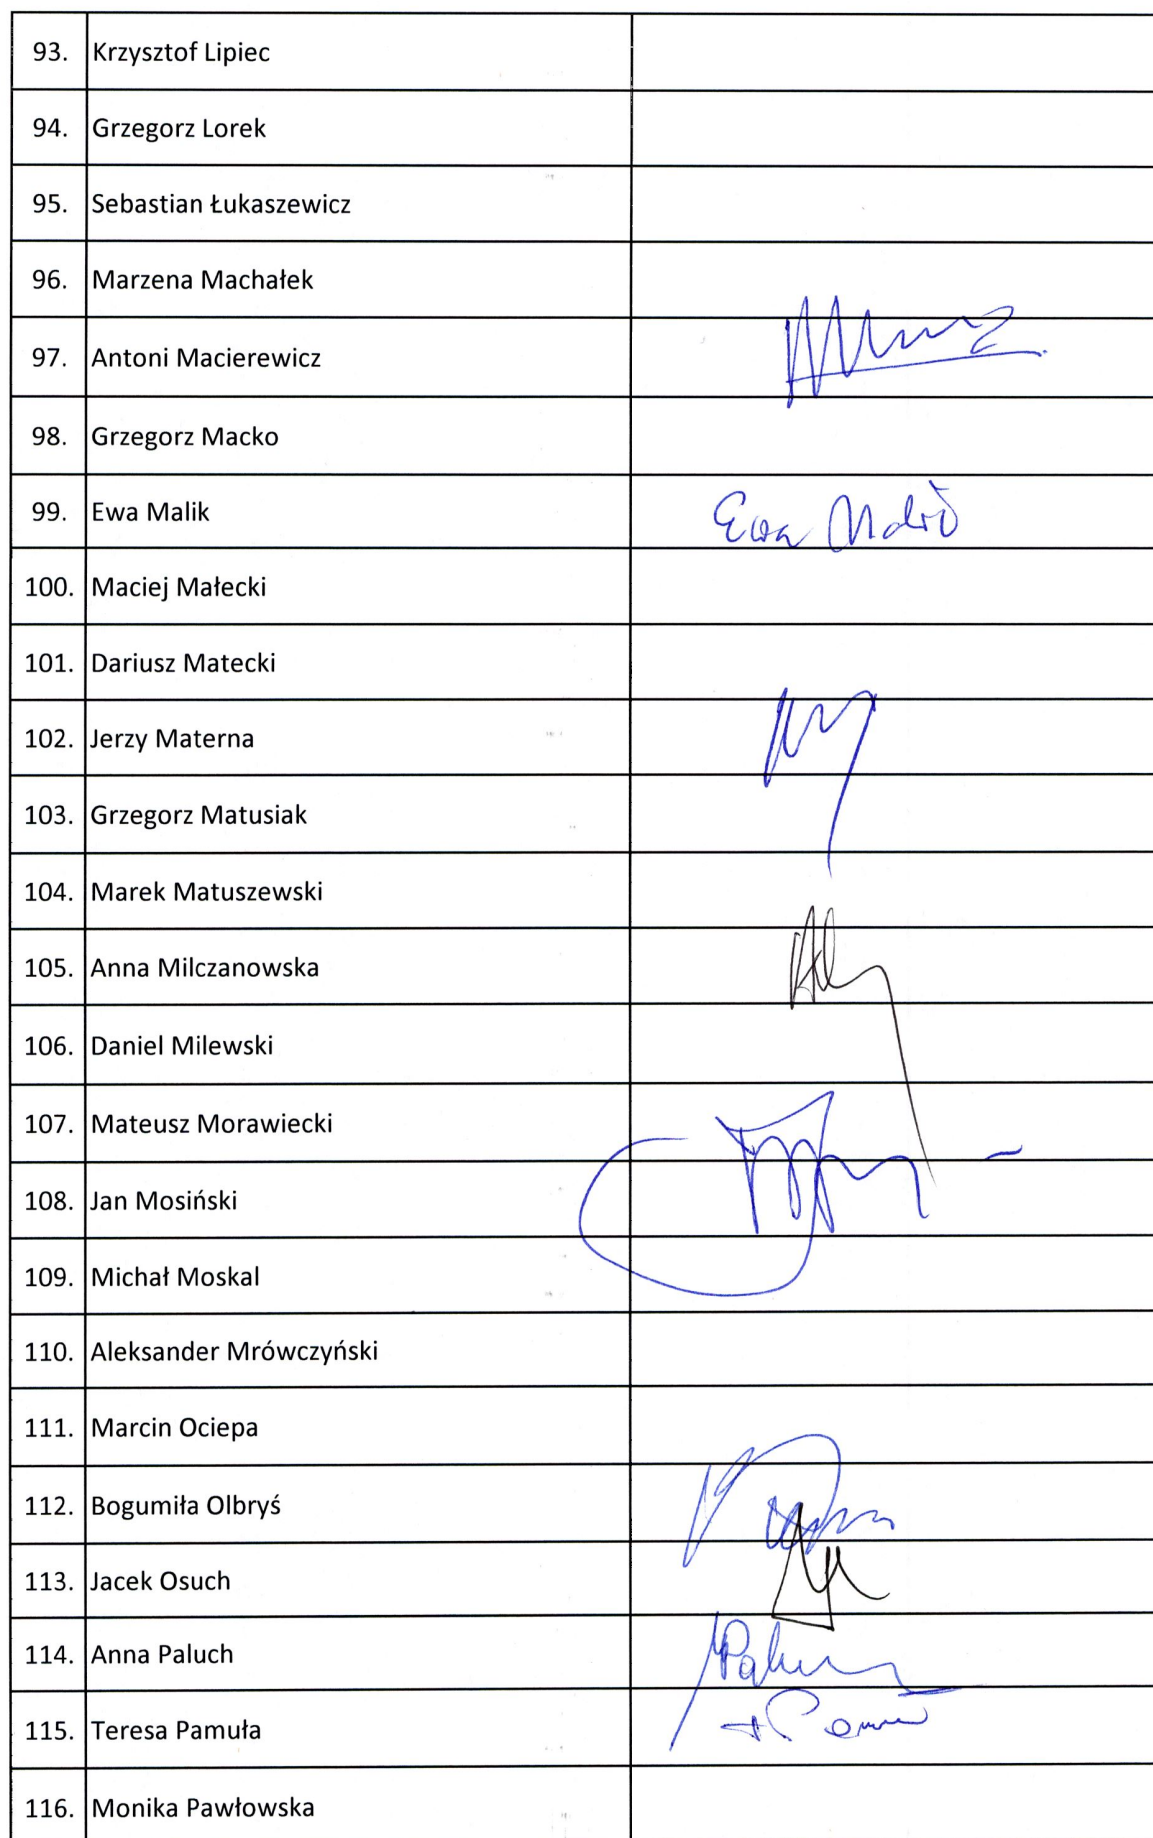 93. Krzysztof Lipiec
94. Grzegorz Lorek
95. Sebastian Łukaszewicz
96. Marzena Machałek
97. Antoni Macierewicz
98. Grzegorz Macko
99. Ewa Malik Ewa Malik
100. Maciej Małecki
101. Dariusz Matecki
102. Jerzy Materna
103. Grzegorz Matusiak
104. Marek Matuszewski
105. Anna Milczanowska
106. Daniel Milewski
107. Mateusz Morawiecki
108. Jan Mosiński
109. Michał Moskal
110. Aleksander Mrówczyński
111. Marcin Ociepa
112. Bogumiła Olbryś
113. Jacek Osuch
114. Anna Paluch
115. Teresa Pamuła
116. Monika Pawłowska